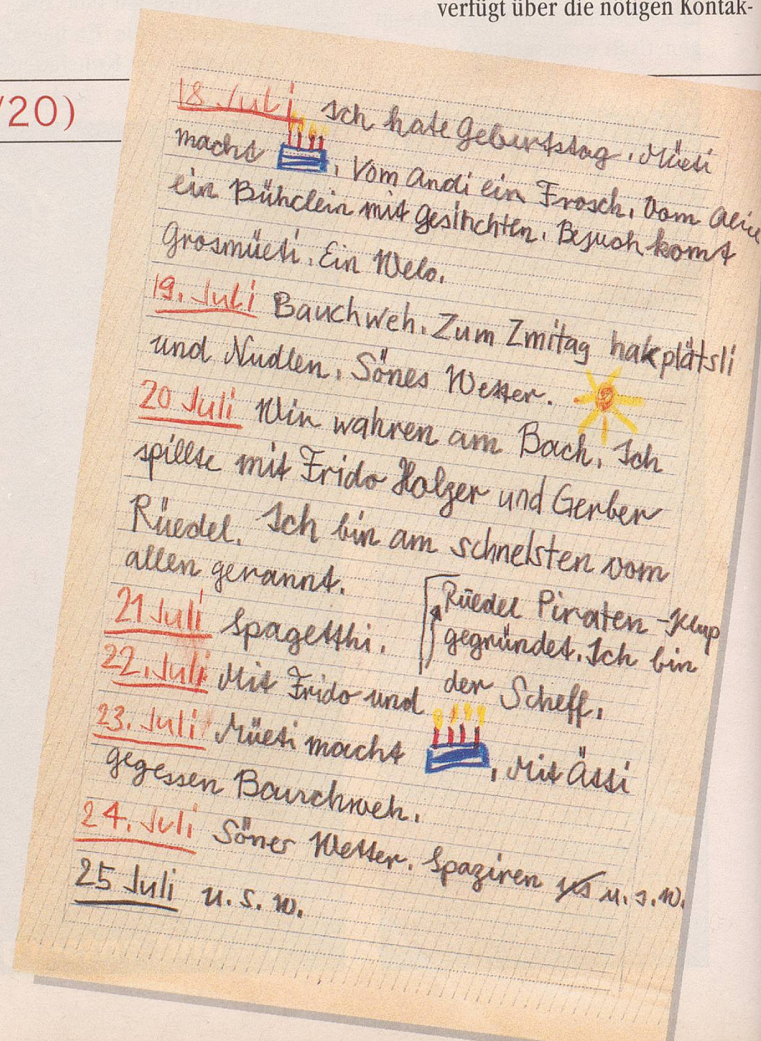 verfügt über die nötigen Kontak-
/20)
18 Juli Ich hate Geburtstag. Müeti
macht , Vom Andi ein Frosch, Vom Alice
ein Bühclein mit Gesihchten. Besuch komt
Grosmüeti. Ein Welo.
19. Juli Bauchweh. Zum Zmitag hakplätsli
und Nudlen. Sönes Wetter.
20 Juli Wir wahren am Bach. Ich
spillte mit Frido Holzer und Gerber
Rüedel. Ich bin am schnelsten vom
allen gerannt.
21 Juli Spagetthi.
22. Juli Mit Frido und
Rüedel Piraten-Klup
gegründet. Ich bin
der Scheff.
23. Juli Müeti macht , Mit Ätti
gegessen Baurchweh.
24. Juli Söner Wetter. Spaziren u. s. w.
25 Juli u. s. w.